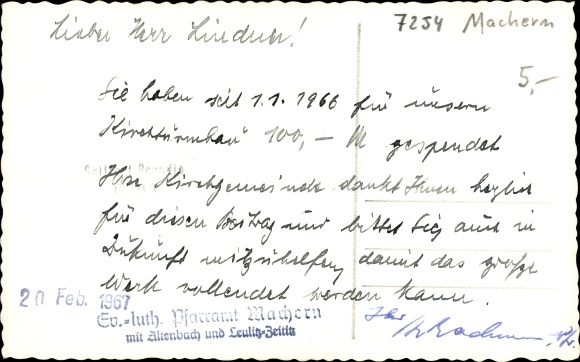 7254 Machern
Lieber Herr Lindner!
5,–
Sie haben seit 1.1.1966 für unsern
Kirchturmbau 100,– M gespendet
Ihre Kirchgemeinde dankt Ihnen herzlich
für diesen Beitrag und bittet Sie, auch in
Zukunft mitzuhelfen, damit das große
Werk vollendet werden kann.
20 Feb. 1967
Ev.-luth. Pfarramt Machern
mit Altenbach und Leulitz-Zeititz
Ihr